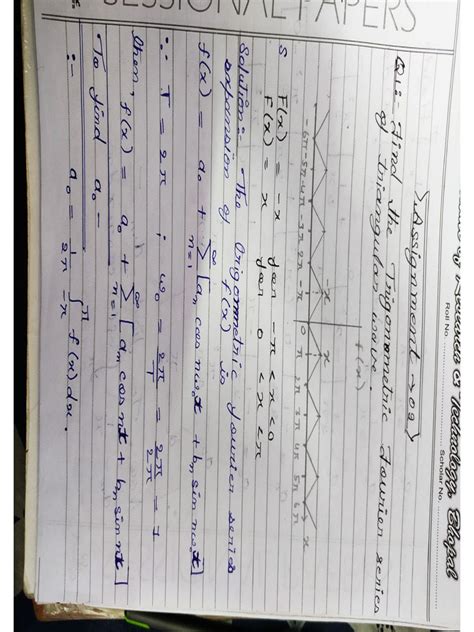 SESSIONAL PAPERS
Technology, Bhopal
Roll No. .............. Scholar No. ..............
Assignment → 02
Q1:- Find the Trigonometric Fourier series
of triangular wave.
f(x)
-x x
-6π -5π -4π -3π -2π -π 0 π 2π 3π 4π 5π 6π x
S F(x) = -x for -π < x < 0
F(x) = x for 0 < x < π
Solution:- The trigonometric fourier series
expansion of f(x) is
f(x) = a₀ + ∞∑n=1 [aₙ cos nω₀t + bₙ sin nω₀t]
∵ T = 2π ; ω₀ = 2π/T = 2π/2π = 1
then, f(x) = a₀ + ∞∑n=1 [aₙ cos nt + bₙ sin nt]
To find a₀ -
:- a₀ = 1/2π ∫-π^π f(x) dx.